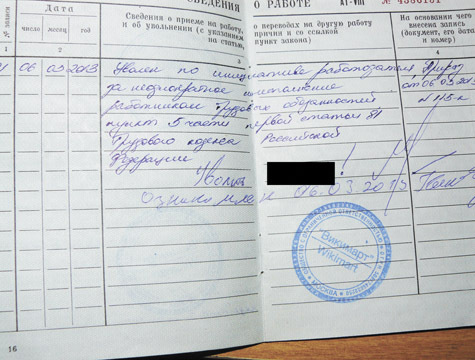 СВЕДЕНИЯ
О РАБОТЕ
АТ-VIII № 4586181
№ записи
Дата
число
месяц
год
Сведения о приеме на работу,
и об увольнении (с указанием
на статью,
о переводах на другую работу
причин и со ссылкой
пункт закона)
На основании чего
внесена запись
(документ, его дата
и номер)
1 2 3 4
06 03 2013 Уволен по инициативе работодателя Приказ
за неоднократное неисполнение от 06.03.2013
работником трудовых обязанностей
пункт 5 части первой статьи 81
Трудового кодекса Российской
Федерации
Ознакомлен 06.03.2013
"Викимарт"
Wikimart
МОСКВА
16